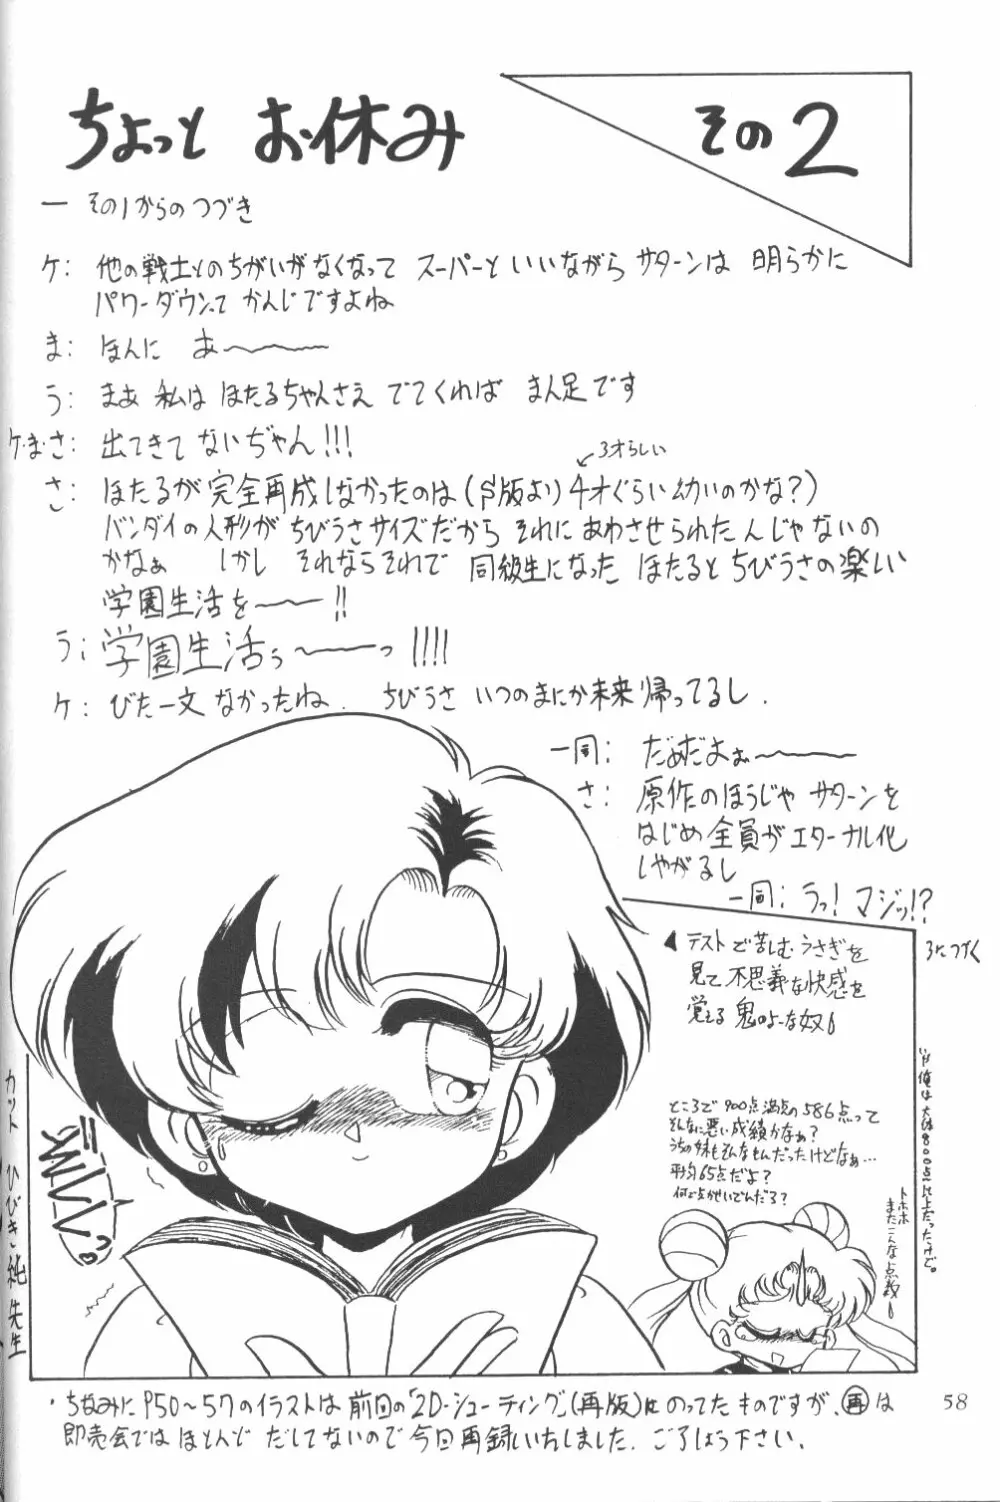 ちょっと お休み
その2
ー その1からのつづき
ケ: 他の戦士とのちがいがなくなって スーパーと いいながら サターンは 明らかに
パワーダウンって かんじですよね
ま: ほんに あ〜〜〜
う: まあ 私は ほたるちゃんさえ でてくれば まん足です
ケ・ま・さ: 出てきて ないぢゃん!!!
3才らしい
さ: ほたるが 完全再成しなかったのは (S版より 4才ぐらい幼いのかな?)
バンダイの人形が ちびうさサイズだから それに あわさせられた んじゃないの
かなぁ しかし それならそれで 同級生になった ほたると ちびうさの楽しい
学園生活を〜〜!!
う: 学園生活ぅ〜〜っ!!!!
ケ: びた一文 なかったね. ちびうさ いつのまにか未来帰ってるし.
一同: だめだよぉ〜〜〜
さ: 原作のほうじゃ サターンを
はじめ 全員が エターナル化
しやがるし
一同: うっ! マジッ!?
3につづく
◀テストで苦しむ うさぎを
見て 不思議な快感を
覚える 鬼のよーな奴
ところで 900点満点の 586点って
そんなに悪い成績かなぁ?
うちの妹もそんなもんだったけどなぁ…
平均65点だよ?
何で点かせいでんだろ?
俺は 大体800点以上だったけど。
トホホ
またこんな点数
カット ひびき純先生
・ちなみに P50〜57のイラストは 前回の「2D・シューティング」(再版)に のってた ものですが、再は
即売会では ほとんど だしてないので 今回 再録いたしました. ご了しょう下さい.
58